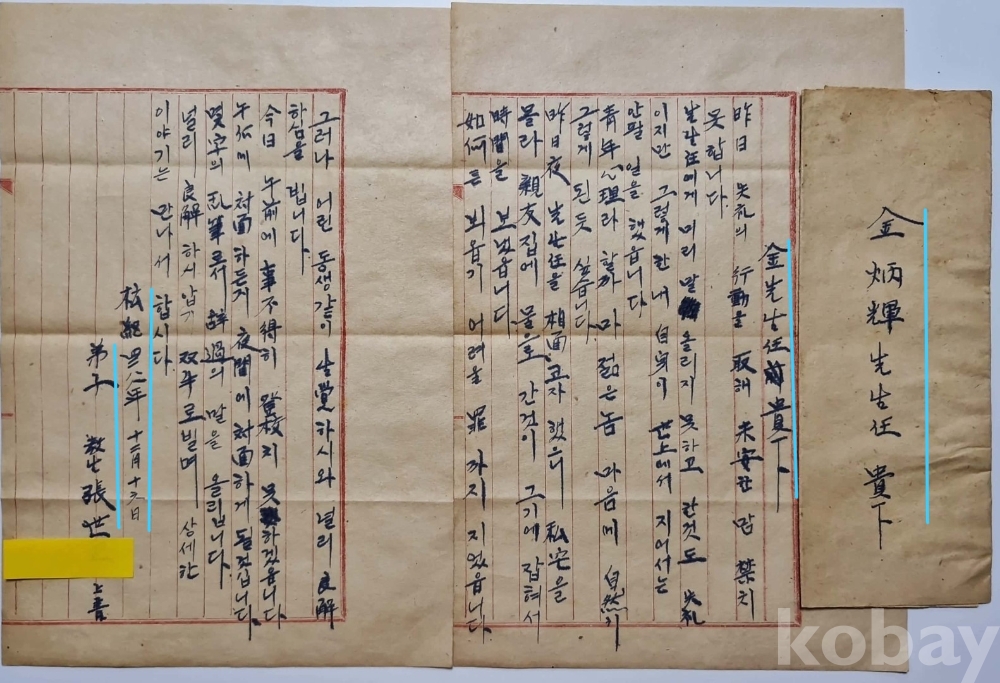 金炳輝先生任 貴下
金先生任前 貴下
昨日 失礼의 行動을 取해 未安한 맘 禁치
못합니다
先生任에게 미리 말 올리지 못하고 한것도 失礼
이지만 그렇게한 내 自身이 世上에서 지어서는
안팔 일을 했읍니다
靑年心理라 할까 마 젊은놈 마음에 自然히
그렇게 된듯 싶습니다
昨日夜 先生任을 相面코자 했으니 私宅을
몰라 親友집에 물으로 간것이 그기에 잡혀서
時間을 보냈읍니다
如何튼 뵈옵기 어려울 罪까지 지었읍니다
그러나 어린 동생같이 生覺하시와 널리 良解
하심을 빕니다
今日 午前에 事不得히 登校치 못하겠읍니다
午后에 対面하든게 夜間에 対面하게 될것입니다
몇字의 乱筆로서 謝過의 말을 올립니다
널리 良解하시옵기 双手로빌며 상세한
이야기는 만나서 합시다
檀紀四二八年 十二月十六日
弟子 敎生 張世 上書
kobay